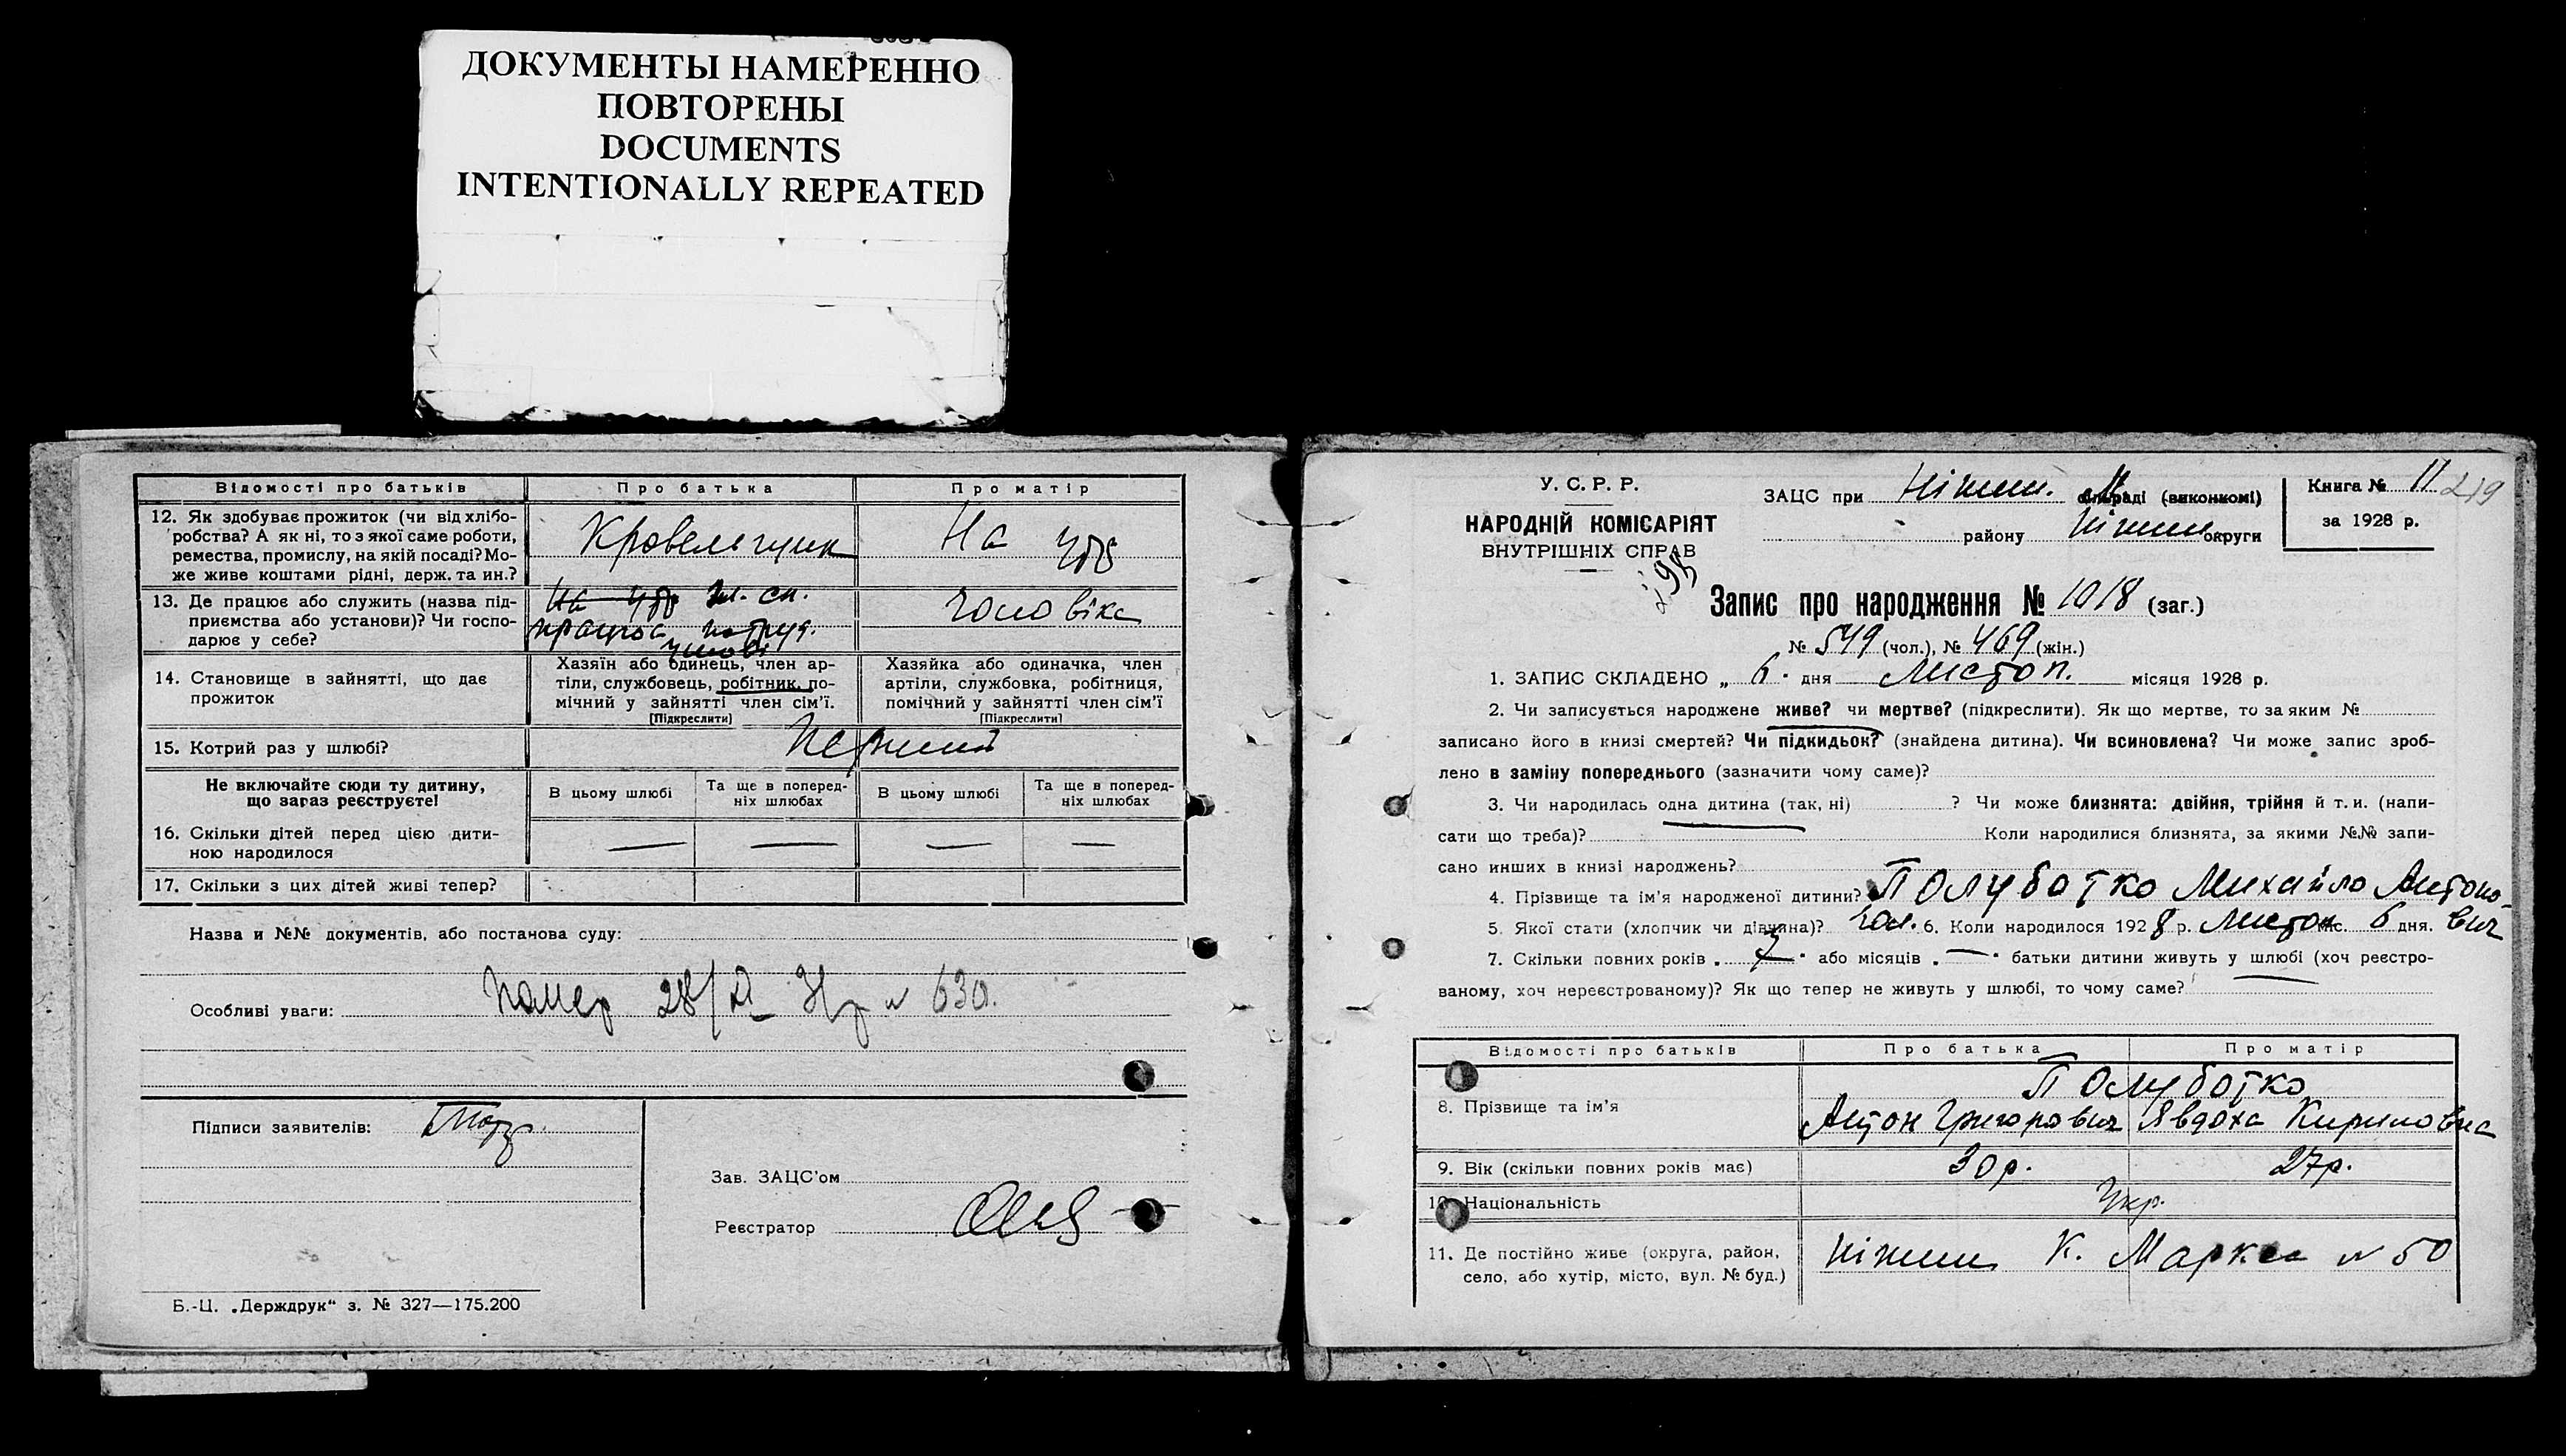 ДОКУМЕНТЫ НАМЕРЕННО
ПОВТОРЕНЫ
DOCUMENTS
INTENTIONALLY REPEATED
Відомості про батьків Про батька Про матір
12. Як здобуває прожиток (чи від хлібо-
робства? А як ні, то з якої саме роботи,
ремества, промислу, на якій посаді? Мо-
же живе коштами рідні, держ. та ин.?
Кровельщик На утр
13. Де працює або служить (назва під-
приємства або установи)? Чи госпо-
дарює у себе?
На утр чл. сп.
працює
чоловіка
14. Становище в зайнятті, що дає
прожиток
Хазяїн або одинець, член ар-
тіли, службовець, робітник, по-
мічний у зайнятті член сім'ї.
[Підкреслити]
Хазяйка або одиначка, член
артіли, службовка, робітниця,
помічний у зайнятті член сім'ї
[Підкреслити]
15. Котрий раз у шлюбі? Перший
Не включайте сюди ту дитину,
що зараз реєструєте!
В цьому шлюбі
Та ще в поперед-
ніх шлюбах
В цьому шлюбі
Та ще в поперед-
ніх шлюбах
16. Скільки дітей перед цією дити-
ною народилося
— — — —
17. Скільки з цих дітей живі тепер?
Назва и №№ документів, або постанова суду:
Особливі уваги: Помер 28/ № 630.
Підписи заявителів:
Зав. ЗАЦС'ом
Реєстратор
Б.-Ц. „Держдрук“ з. № 327—175.200
У. С. Р. Р.
НАРОДНІЙ КОМІСАРІЯТ
ВНУТРІШНІХ СПРАВ
ЗАЦС при Ніжин. М. сільраді (виконкомі)
району Ніжин округи
Книга № 11 219
за 1928 р.
Запис про народження № 1018 (заг.)
№ 549 (чол.), № 469 (жін.)
1. ЗАПИС СКЛАДЕНО „ 6 . дня Листоп. місяця 1928 р.
2. Чи записується народжене живе? чи мертве? (підкреслити). Як що мертве, то за яким №
записано його в книзі смертей? Чи підкидьок? (знайдена дитина). Чи всиновлена? Чи може запис зроб-
лено в заміну попереднього (зазначити чому саме)?
3. Чи народилась одна дитина (так, ні) ? Чи може близнята: двійня, трійня й т. и. (напи-
сати що треба)? Коли народилися близнята, за якими №№ запи-
сано инших в книзі народжень?
4. Прізвище та ім'я народженої дитини? Полуботко Михайло Антоно-
5. Якої стати (хлопчик чи дівчина)? чол. 6. Коли народилося 1928 р. Листоп міс. 6 дня. вич
7. Скільки повних років „ 7 “ або місяців „ — “ батьки дитини живуть у шлюбі (хоч реєстро-
ваному, хоч нереєстрованому)? Як що тепер не живуть у шлюбі, то чому саме?
Відомості про батьків Про батька Про матір
Полуботко
8. Прізвище та ім'я Антон Григорович Явдоха Кириловна
9. Вік (скільки повних років має) 30 р. 27 р.
10. Національність Укр.
11. Де постійно живе (округа, район,
село, або хутір, місто, вул. № буд.)
Ніжин К. Маркса № 50